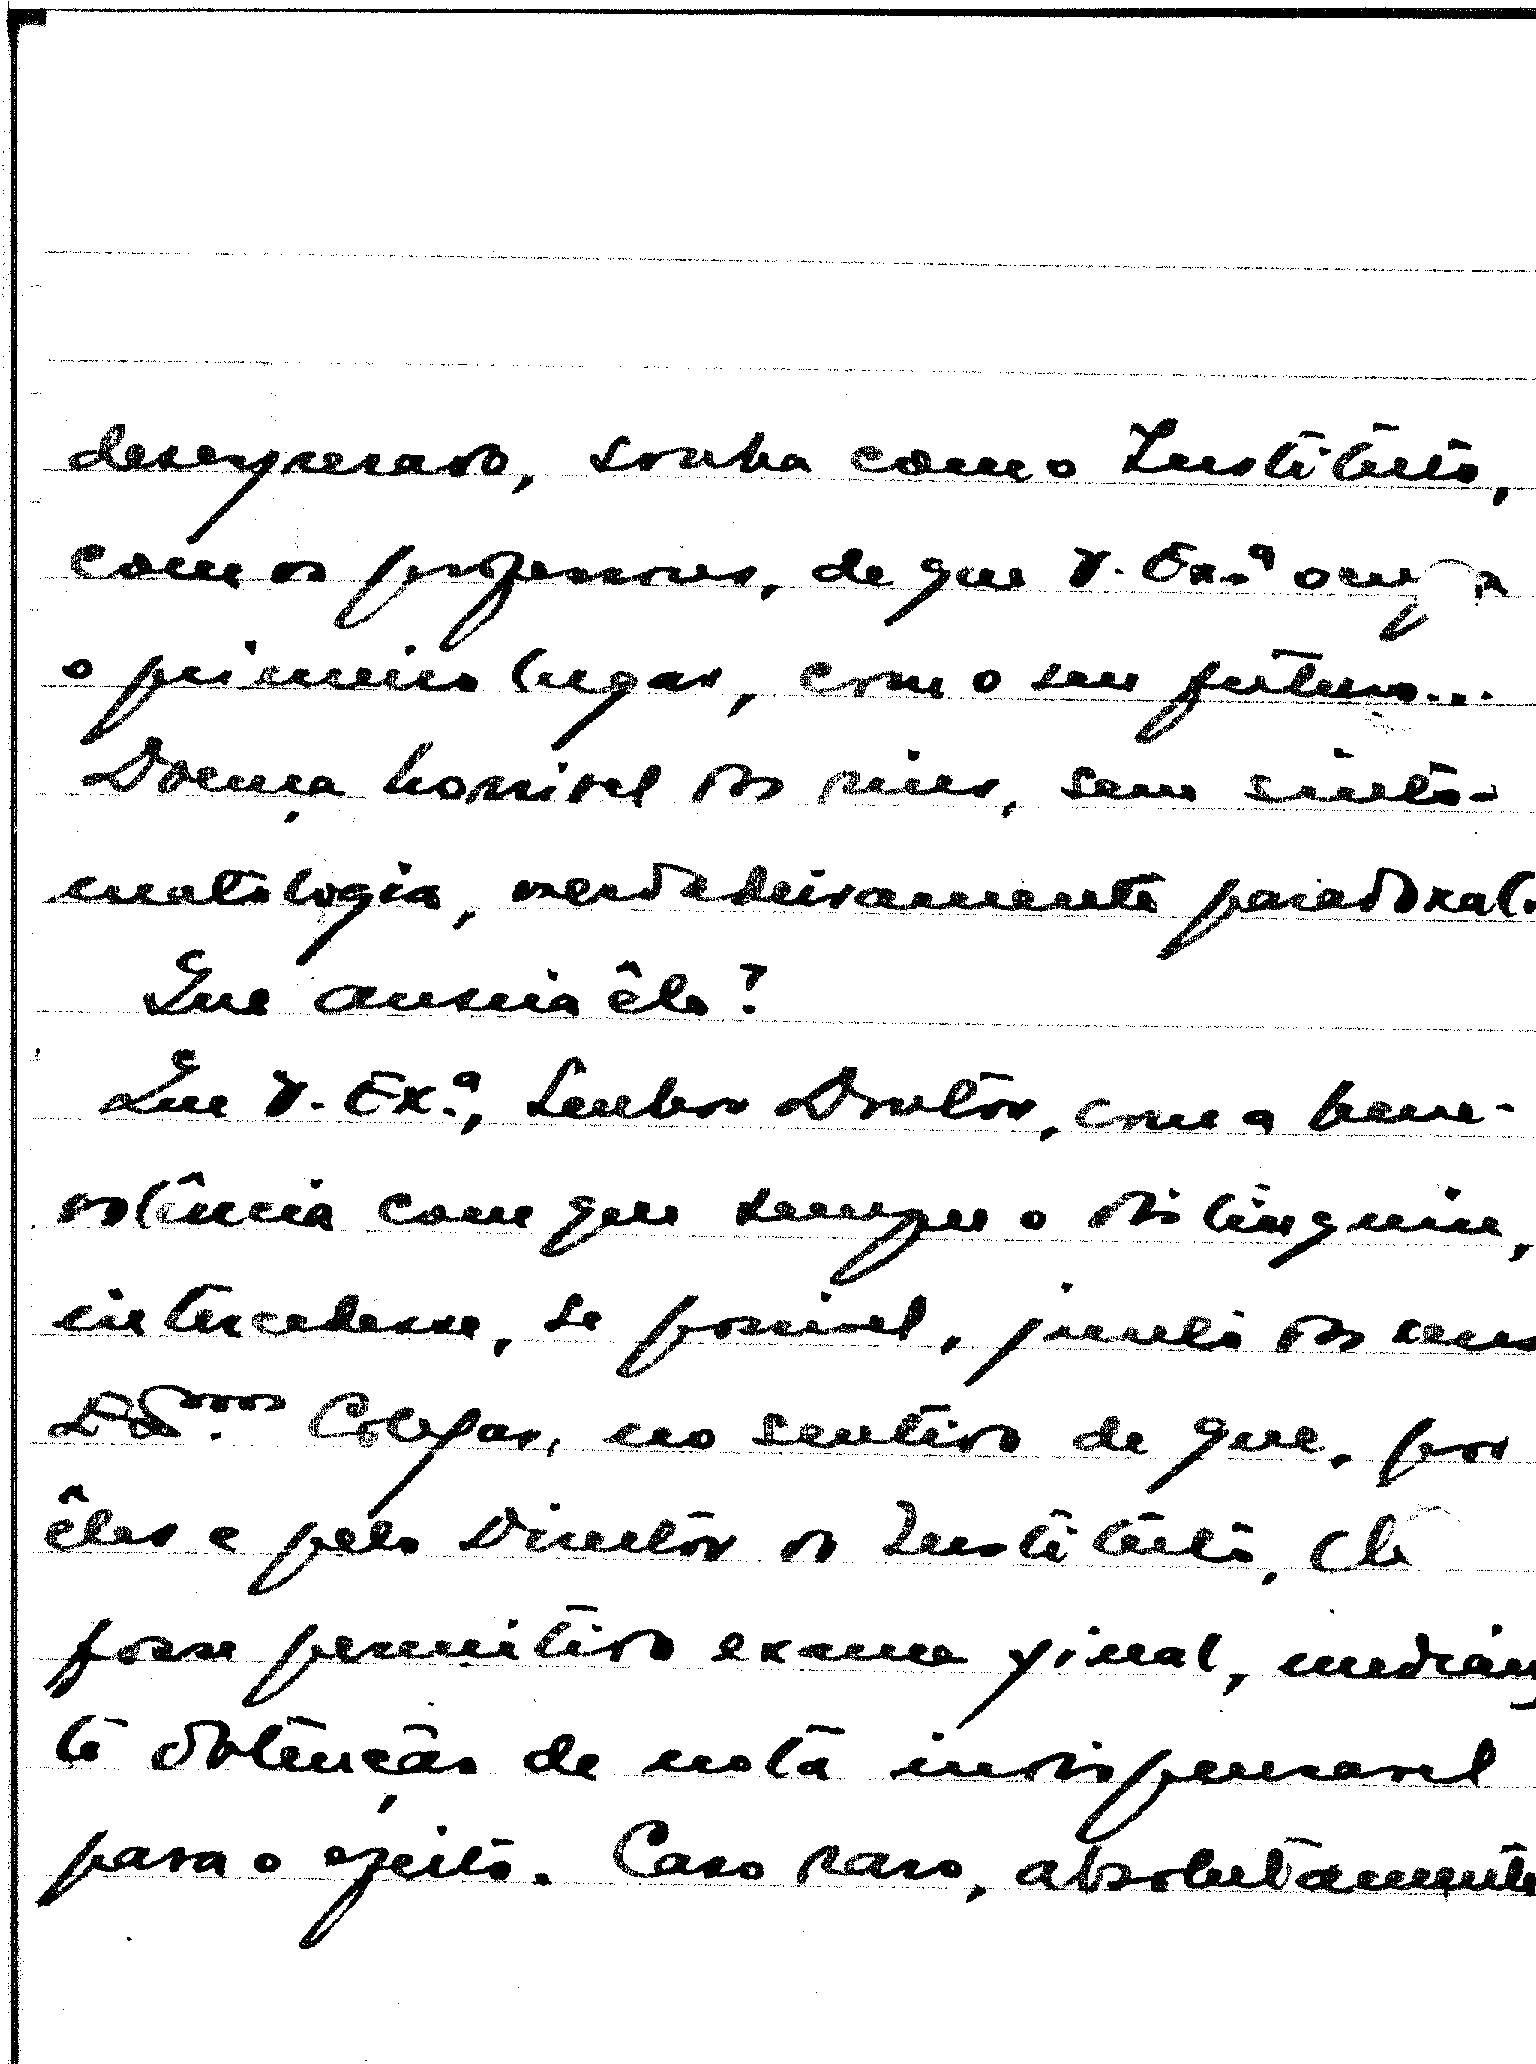 desesperado, sonha com o Instituto,
com os professores, de que V. Ex.ª ocupa
o primeiro lugar, com o seu futuro...
Doença horrivel dos rins, sem sinto-
matologia, verdadeiramente paradoxal.
Que anseia êle?
Que V. Ex.ª, Senhor Doutor, com a bene-
volência com que sempre o distinguiu,
intercedesse, se possivel, junto dos seus
Dd.mos Colegas, no sentido de que, por
êles e pelo Director do Instituto, lhe
fosse permitido exame final, median
te obtenção de nota indispensavel
para o efeito. Caso raro, absolutamente